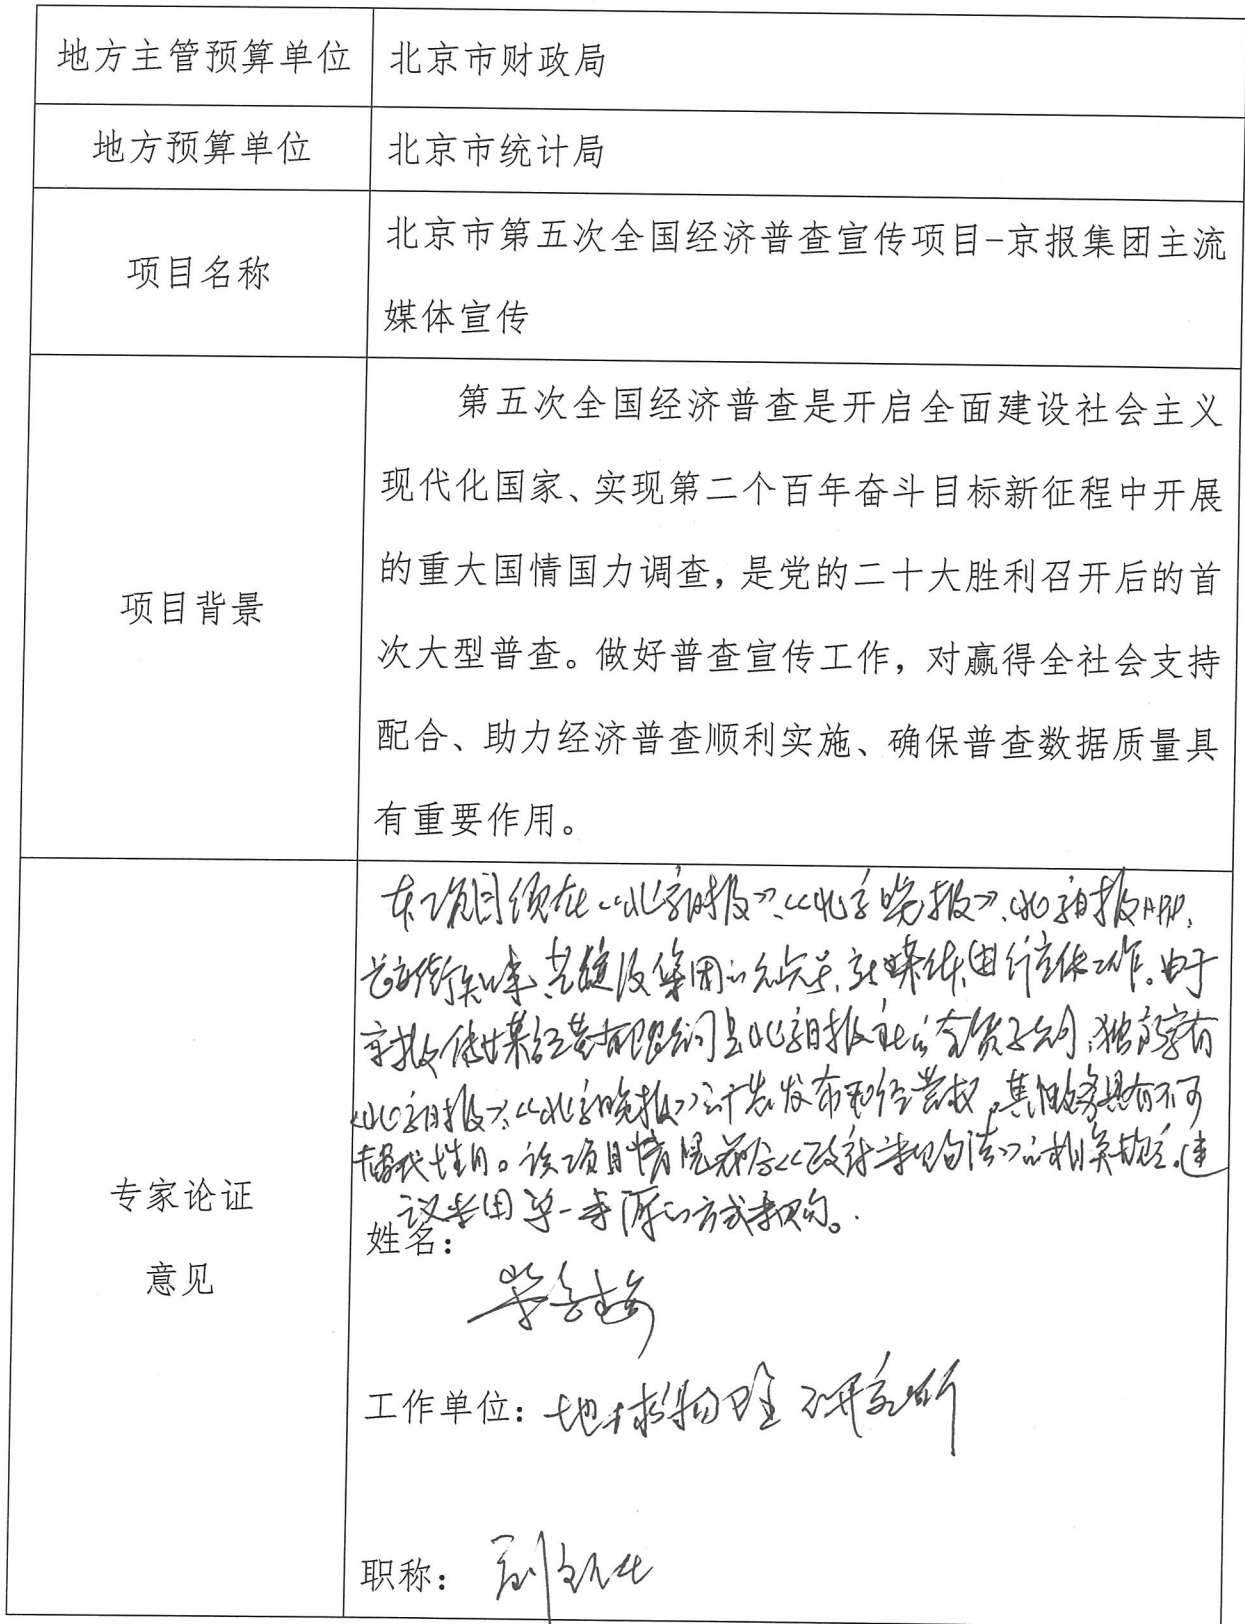 地方主管预算单位
北京市财政局
地方预算单位
北京市统计局
项目名称
北京市第五次全国经济普查宣传项目-京报集团主流
媒体宣传
项目背景
第五次全国经济普查是开启全面建设社会主义
现代化国家、实现第二个百年奋斗目标新征程中开展
的重大国情国力调查,是党的二十大胜利召开后的首
次大型普查。做好普查宣传工作,对赢得全社会支持
配合、助力经济普查顺利实施、确保普查数据质量具
有重要作用。
专家论证
意见
本项目须在《北京日报》、《北京晚报》、北京日报APP、
长安街知事、京报集团 新媒体 工作。由于
京报传媒经营有限公司是北京日报社的全资子公司,独家享有
《北京日报》、《北京晚报》广告发布和经营权,其服务具有不可
替代性。该项目情况符合《政府采购法》的相关规定,建
议采用单一来源的方式采购。
姓名:
工作单位:地球物理研究所
职称:副